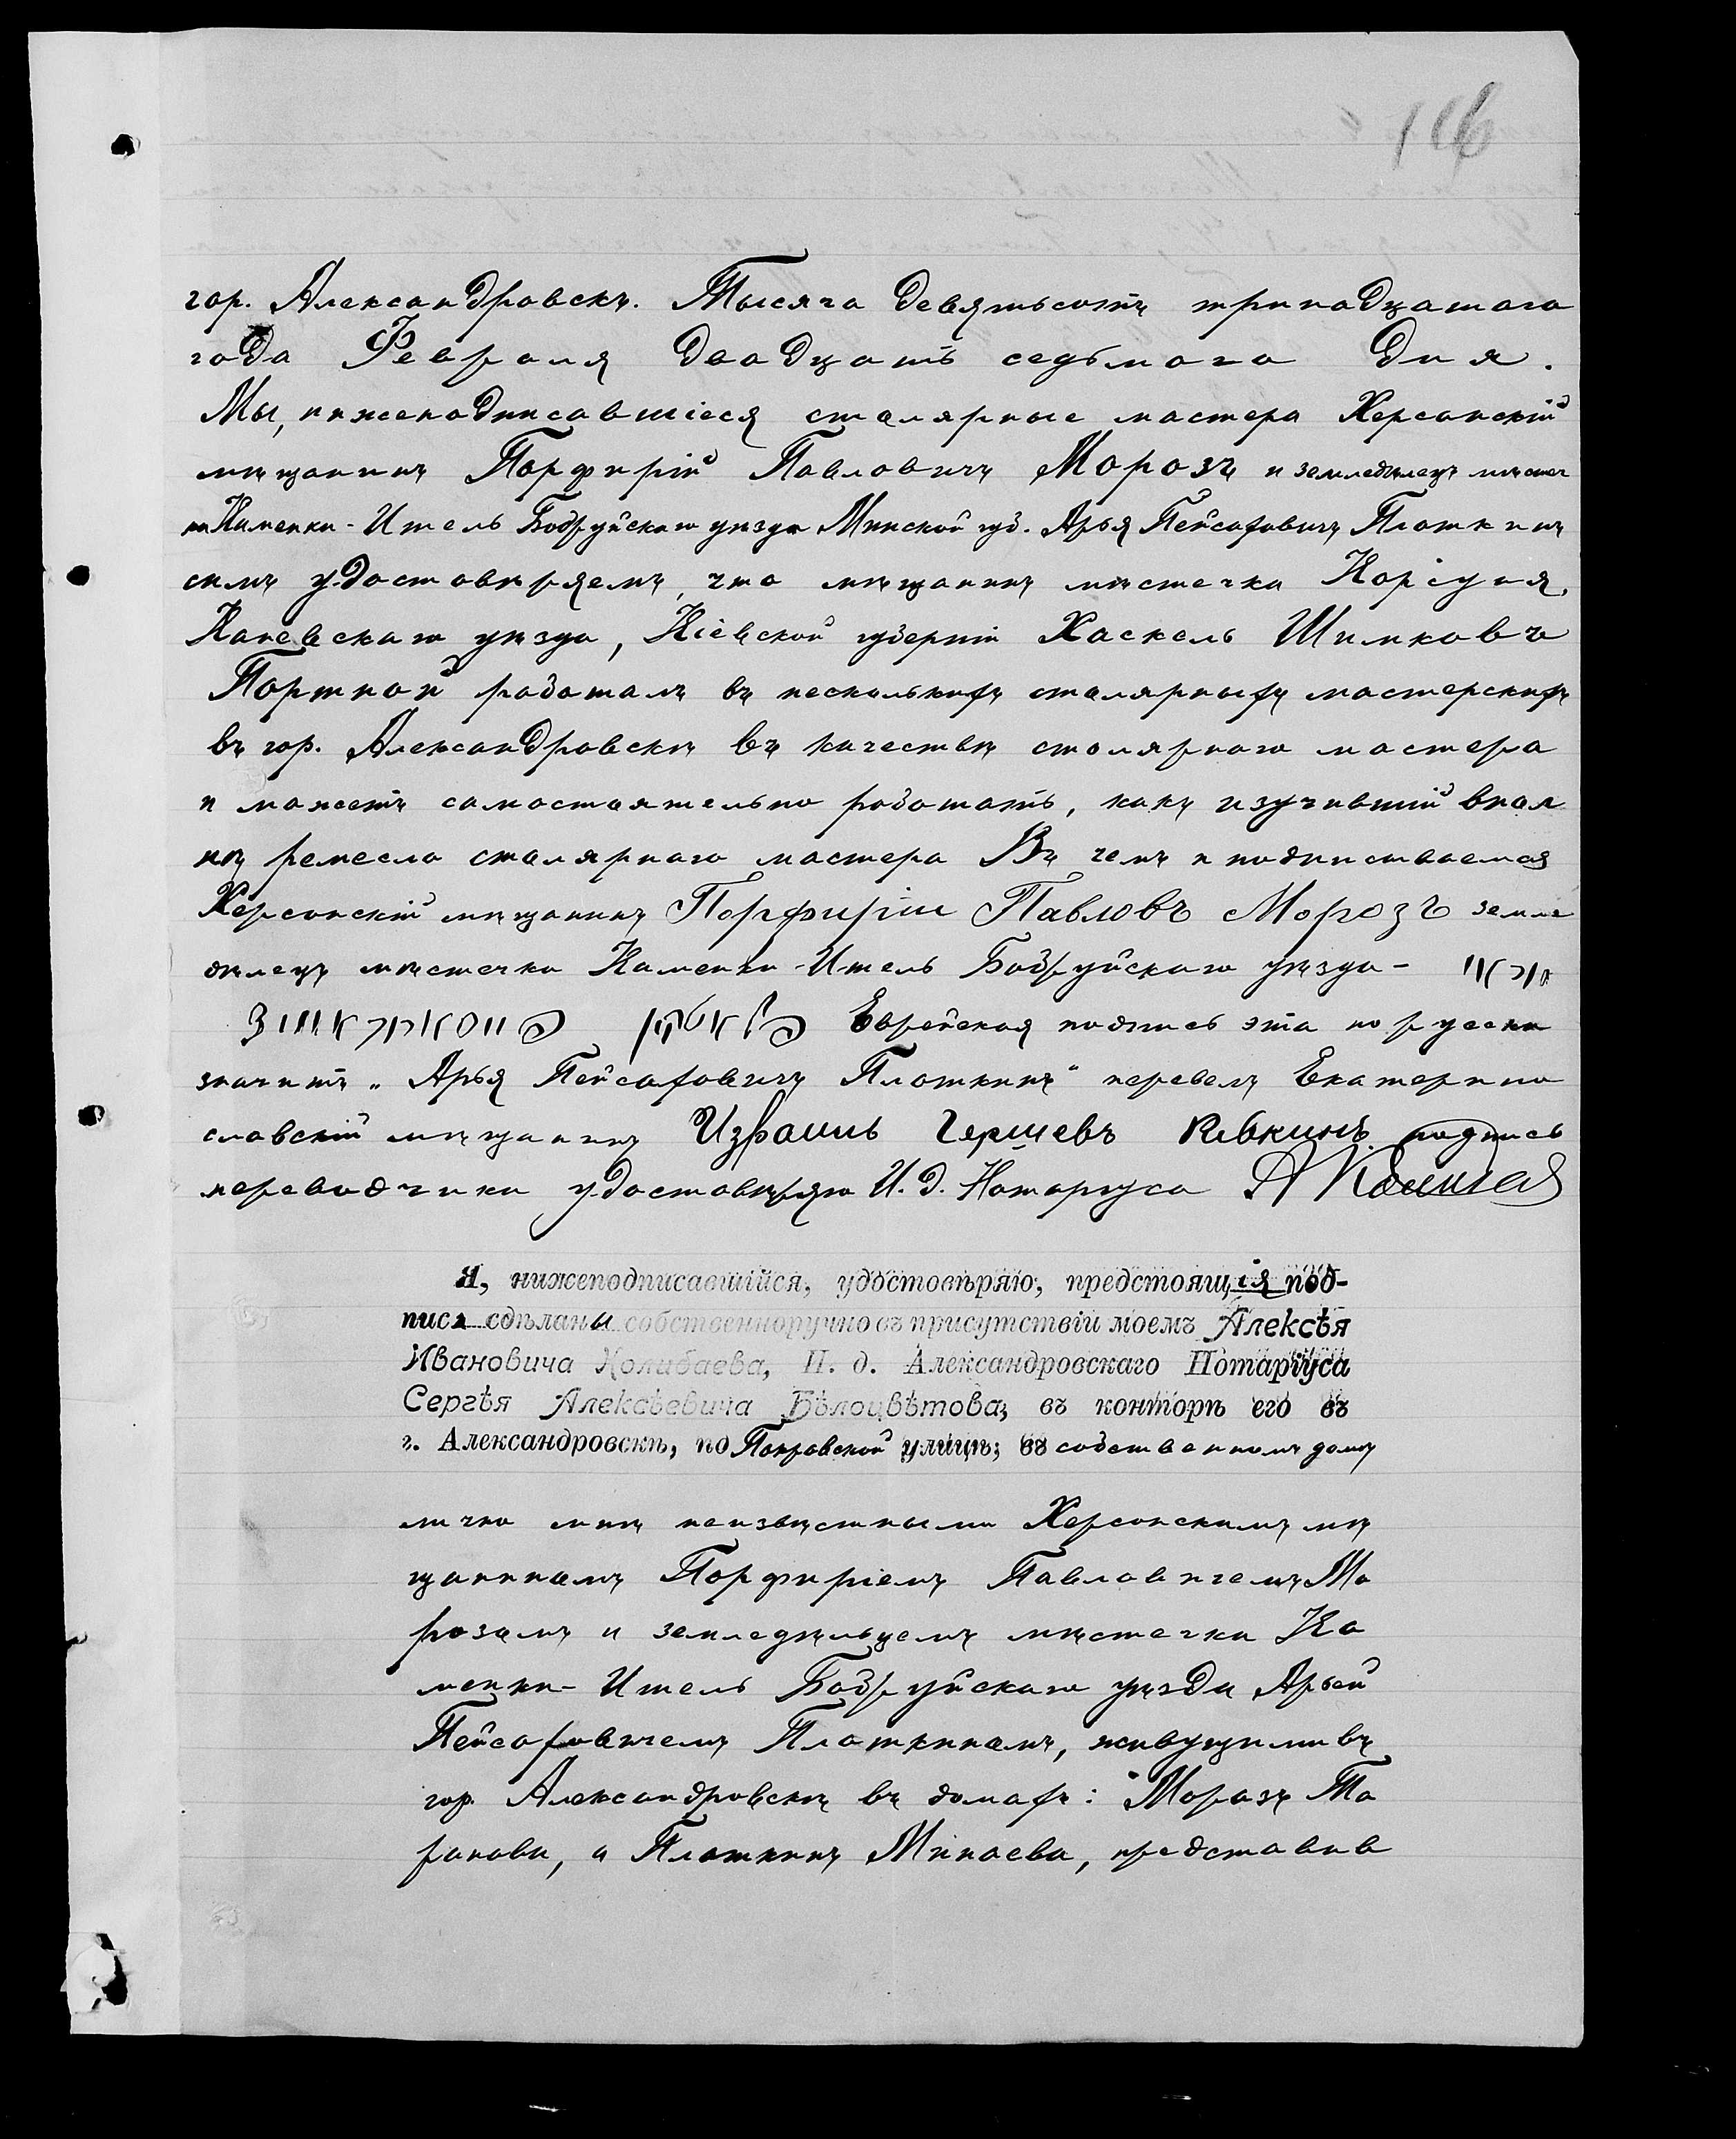 116
гор. Александровскъ. Тысяча девятьсотъ тринадцатого
года Февраля двадцать седьмого дня.
Мы, нижеподписавшіеся столярные мастера Херсонскій
мѣщанинъ Порфирій Павловичъ Морозъ и земледѣлецъ мѣстеч
ка Каменки-Итель Бобруйскаго уѣзда Минской губ. Арья Пейсаховичъ Плоткинъ
симъ удостовѣряемъ, что мѣщанинъ мѣстечка Корсуня,
Каневскаго уѣзда, Кіевской губерніи Хаскель Шимковъ
Портной работалъ въ несколькихъ столярныхъ мастерскихъ
въ гор. Александровскѣ въ качествѣ столярнаго мастера
и можетъ самостоятельно работать, какъ изучившій впол
нѣ ремесло столярнаго мастера Въ чемъ и подписываемся
Херсонскій мѣщанинъ Порфирій Павловъ Морозъ земле
дѣлецъ мѣстечка Каменки-Итель Бобруйскаго уѣзда-
פלאטקין Еврейская подпись эта по русски
значитъ „Арья Пейсаховичъ Плоткинъ" перевелъ Екатерино
славскій мѣщанинъ Израиль Гершевъ Ривкинъ. подпись
переводчика удостовѣряю И. д. Нотаріуса
Я, нижеподписавшійся, удостовѣряю, предстоящія под-
писи сдѣланы собственноручно въ присутствіи моемъ Алексѣя
Ивановича Колибаева, И. д. Александровскаго Нотаріуса
Сергѣя Алексѣевича Бѣлоцвѣтова, въ конторѣ его въ
г. Александровскѣ, по Покровской улицѣ, въ собственномъ домѣ
лично мнѣ неизвѣстными Херсонскимъ мѣ
щаниномъ Порфиріемъ Павловичемъ Мо
розомъ и земледѣльцемъ мѣстечка Ка
менки-Итель Бобруйскаго уѣзда Арьей
Пейсаховичемъ Плоткинымъ, живущими въ
гор. Александровскѣ въ домахъ: Морозъ Та
ранова, а Плоткинъ Минаева, представив